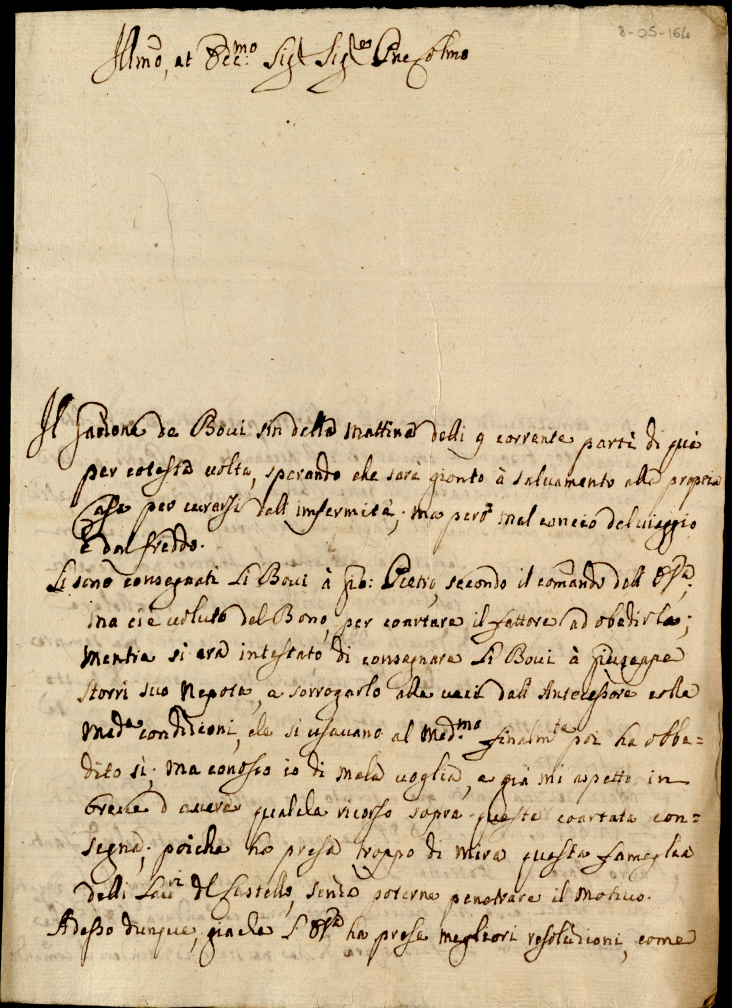 8-05-164
Illmo, et Ecc:mo Sigr Sigre Pne Colmo
Il Garzone de Boui sin della Mattina delli 9 corrente partì di quà
per cotesta volta, sperando che sarà gionto à saluamento alla propria
Casa per curarsi dall'infermità; ma però mal concio del uiaggio
è dal freddo.
Si sono consegnati Li Boui à Gio: Pietro, secondo il comando dell'E V;
ma ci è uoluto del Bono, per coartare il fattore ad obedirla;
mentre si era intestato di consegnare Li Boui à Giuseppe
Storri suo Nepote, e sorrogarlo alle ueci dell'Antecessore colle
Mede condizioni, che si usauano al Med:mo finalmte poi ha obbe=
dito sì; ma conosco io di mala uoglia, e già mi aspetto in
breue d'auere qualche ricorso sopra questa coartata con=
segna; poiche ha presa troppo di mira questa fameglia
delli del Castello, senza poterne penetrare il motiuo.
Adesso dunque, giache L'E V ha prese megliori resoluzioni, come